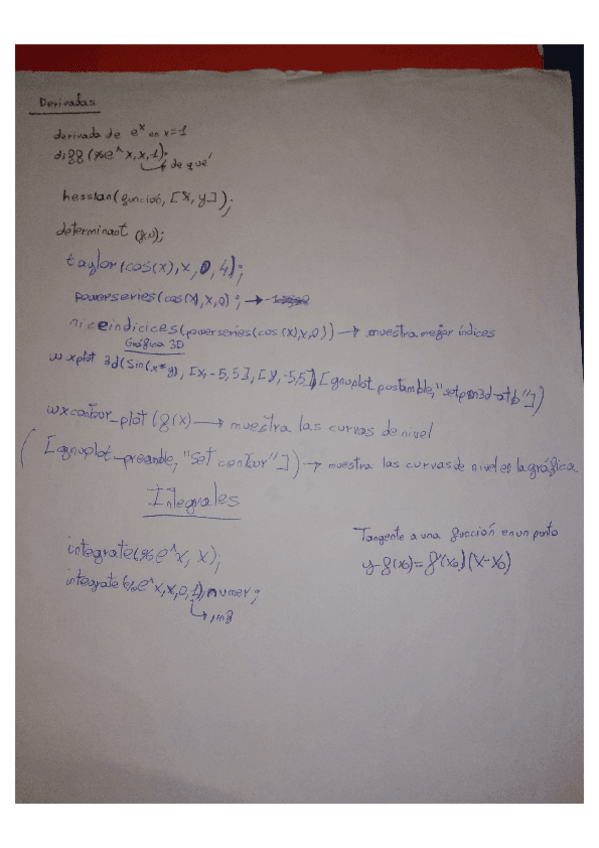 Derivadas
derivada de e^x en x=1
diff(%e^x,x,1);
de qué
hessian(función, [x, y]);
determinant (f(x));
taylor(cos(x),x,0,4);
powerseries(cos(x),x,0); →
niceindicices(powerseries(cos(x),x,0)) → muestra mejor índices
Gráfina 3D
wxplot 3d(sin(x*y), [x,-5,5],[y,-5,5],[gnuplot_postamble,"set pm3d at b"])
wxcontour_plot(f(x) → muestra las curvas de nivel
([gnuplot_preamble,"set contour"]) → muestra las curvas de nivel en la gráfica
Integrales
integrate(%e^x, x);
integrate(%e^x,x,0,1),numer;
→ inf
Tangente a una función en un punto
y-f(x0)=f'(x0)(x-x0)